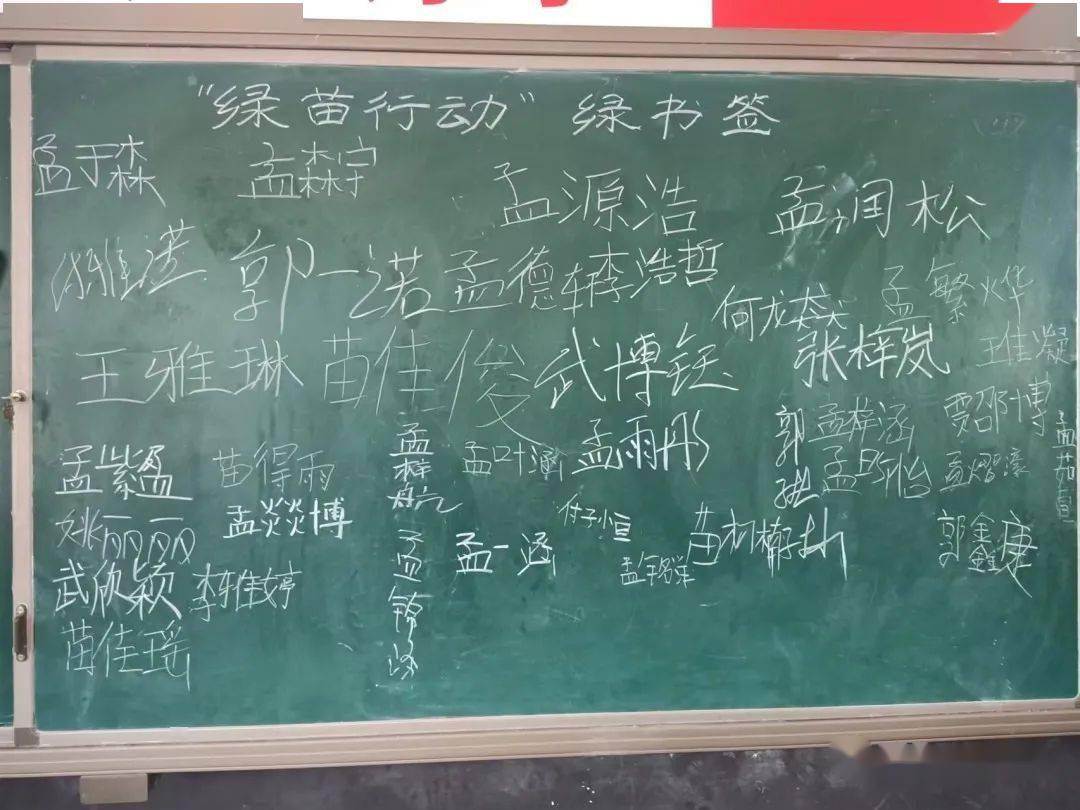 “绿苗行动” 绿书签
孟于森 孟森宇 孟源浩 孟润松
郭一诺 孟德车 李浩哲 孟繁烨
何龙焱 王佳凝
王雅琳 苗佳俊 武博钰 张梓岚
孟梓涵 贾邵博
孟紫盈 苗得雨 孟梓航 孟叶涵 孟雨彤 郭
孟熠濠 孟茹萱
姚丽丽 孟燚博 付子恒
孟一涵 苗 郭鑫康
武欣颖 李雅婷
苗佳瑶